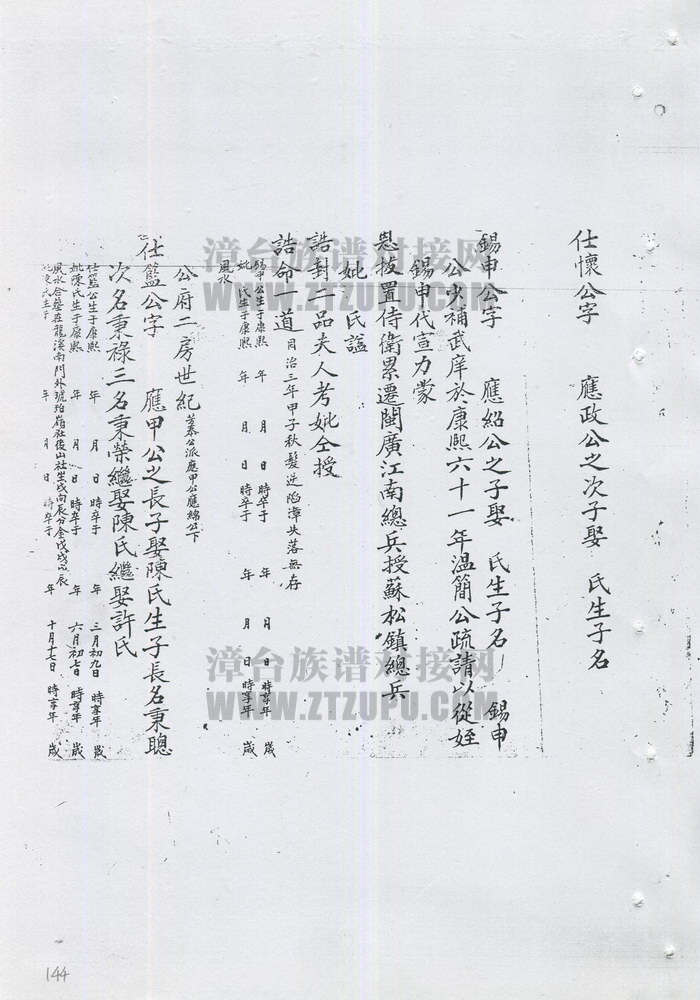 仕懷公字 應政公之次子娶 氏生子名
錫申公字 應紹公之子娶 氏生子名 錫申
公少補武庠於康熙六十一年温簡公疏請以從姪
錫申代宣力蒙
恩拔置侍衛累遷閩廣江南總兵授蘇松鎮總兵
妣 氏諡
誥封二品夫人考妣仝授
誥命一道 同治三年甲子秋髮逆陷漳失落無存
錫申公生于康熙 年 月 日 時卒于 年 月 日 時享年 歲
妣 氏生于康熙 年 月 日 時卒于 年 月 日 時享年 歲
風水
公府二房世紀 芳泰公派應甲公應綿公下
仕籃公字 應甲公之長子娶陳氏生子長名秉聰
次名秉祿三名秉榮繼娶陳氏繼娶許氏
仕籃公生于康熙 年 月 日 時卒于 年 三月初九日 時享年 歲
妣陳氏生于康熙 年 月 日 時卒于 年 六月初七日 時享年 歲
風水合塟在龍溪南門外琥珀嶺社後山社坐戌向辰分金戊戌戊辰
妣陳氏生于 年 月 日 時卒于 年 十月十七日 時享年 歲
漳台族谱对接网
WWW.ZTZUPU.COM
漳台族谱对接网
WWW.ZTZUPU.COM
144